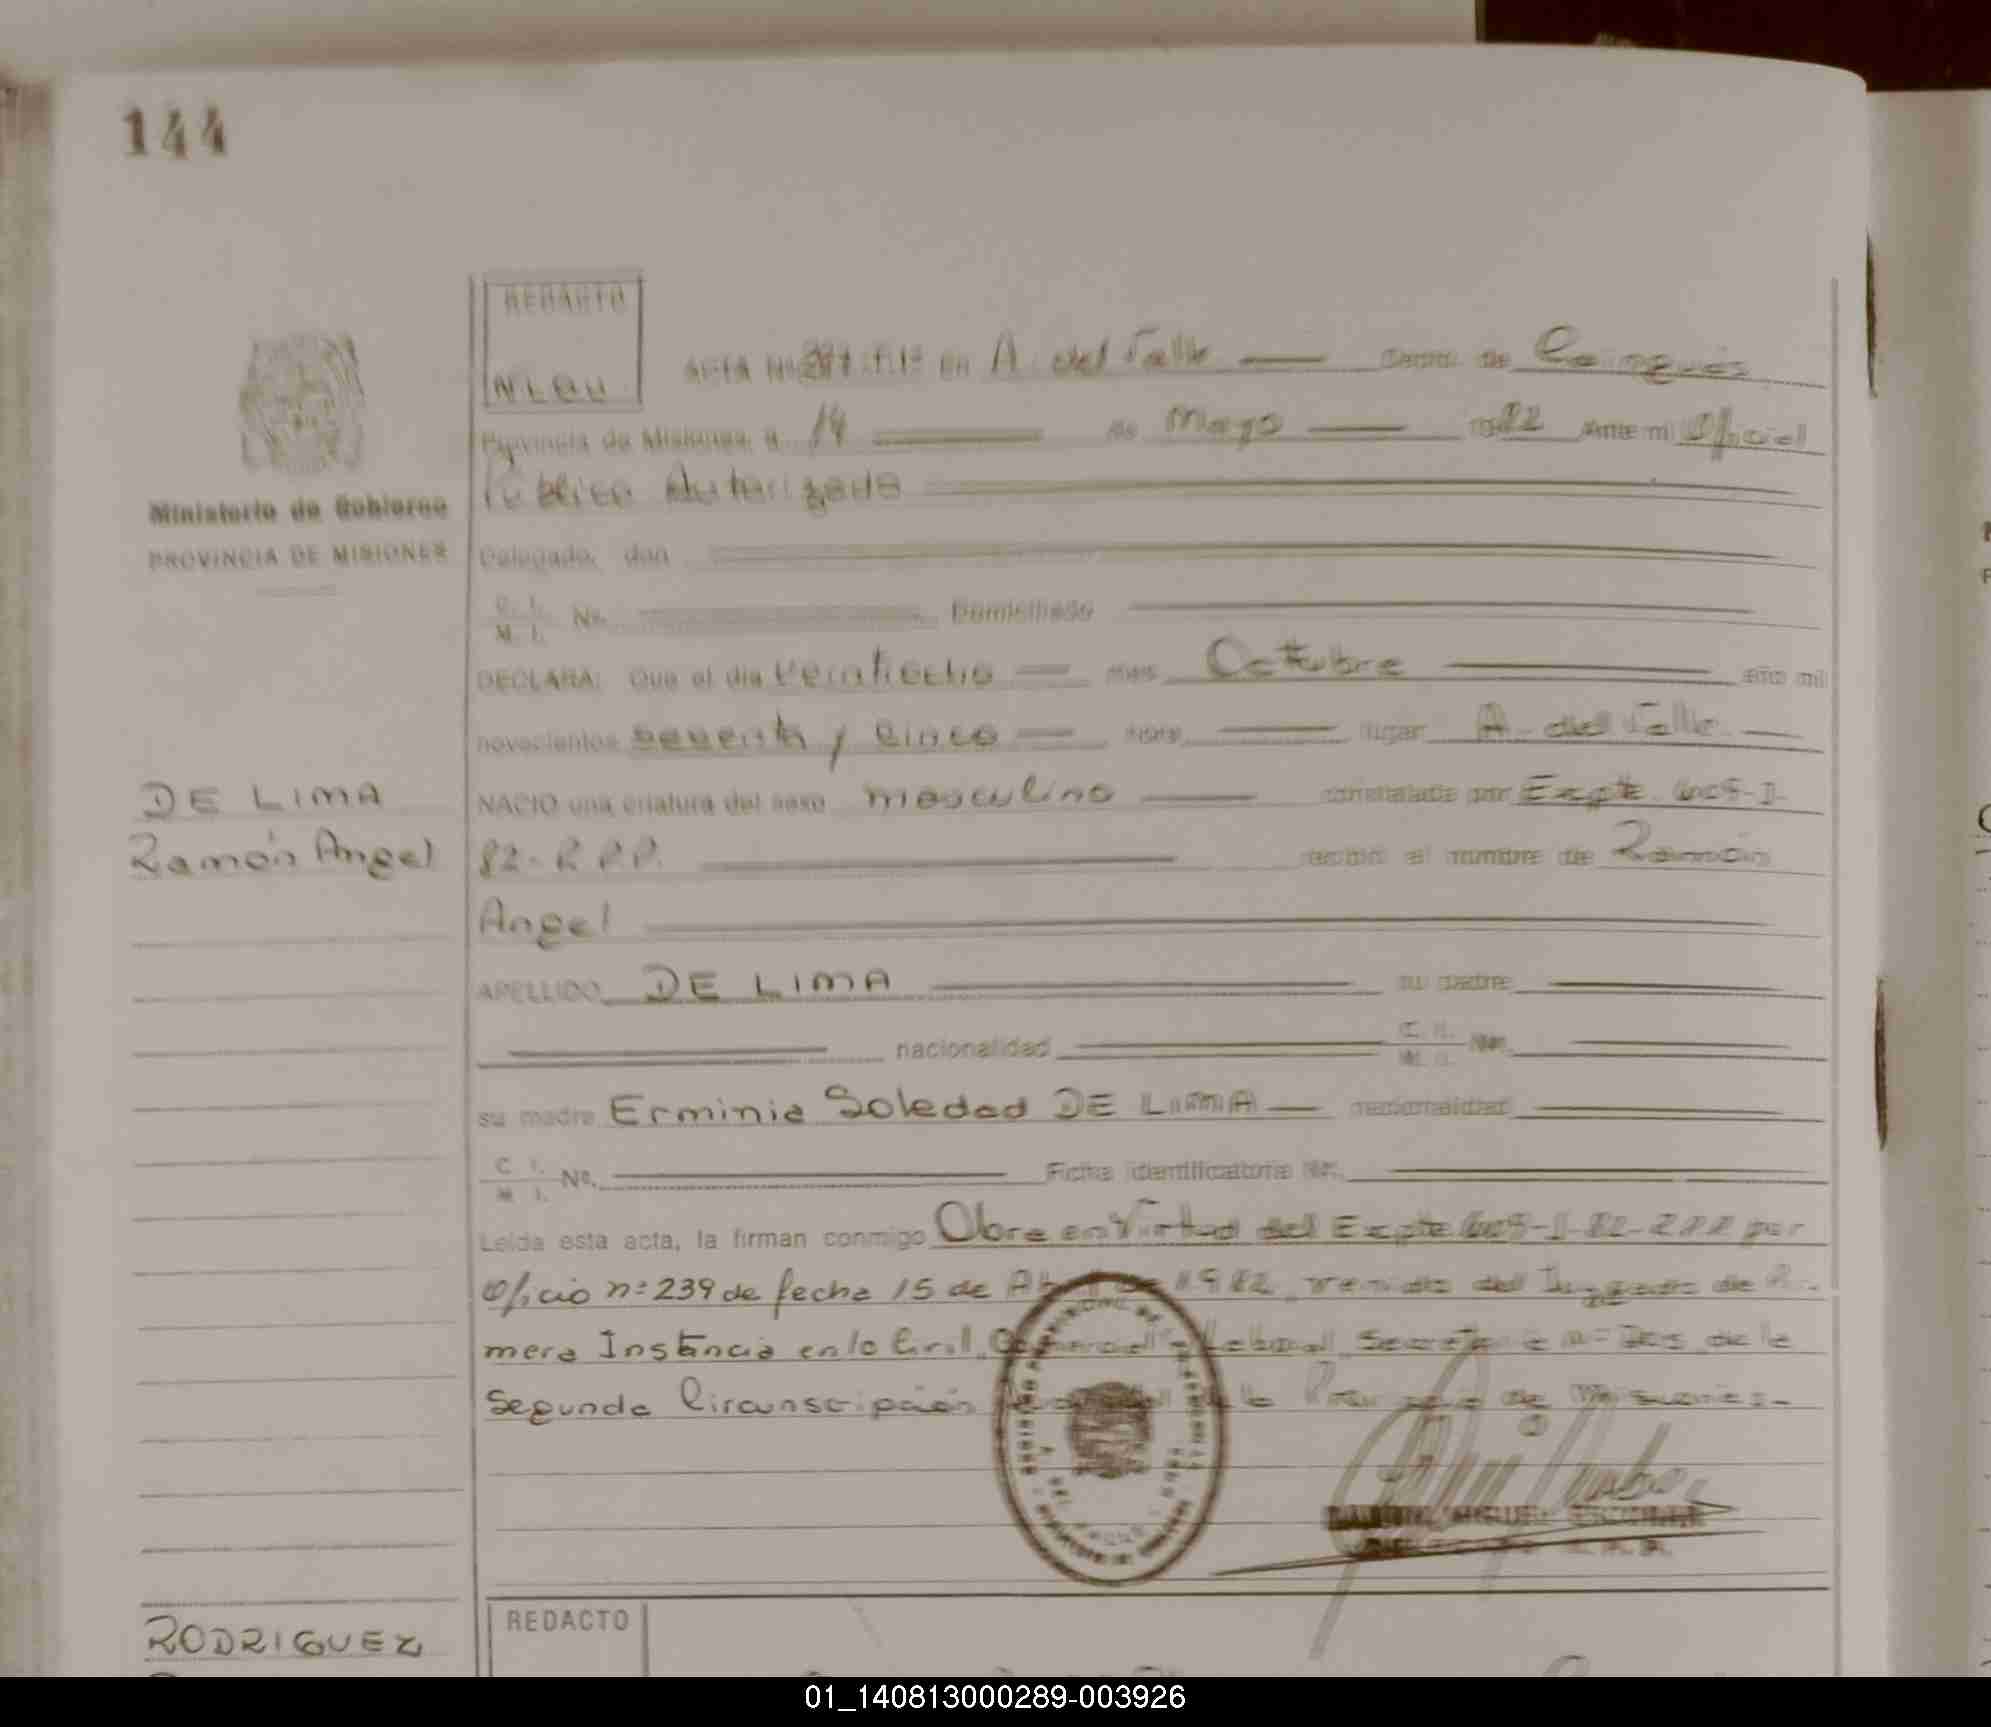 144
REDACTO
ACTA en A. del Valle de
Provincia de Misiones, a 14 de Mayo 1982 Ante mi Oficial
Público Autorizado
Ministerio de Gobierno
PROVINCIA DE MISIONES
Delegado, don
C. I.
M. I. No. Domiciliado
DECLARA: Que el día Veintiocho mes Octubre año mil
novecientos setenta y cinco hora lugar A. del Valle
DE LIMA
Ramón Angel
NACIO una criatura del sexo masculino constatada por Expte.
82- recibió el nombre de Ramón
Angel
APELLIDO DE LIMA su padre
nacionalidad C. I. M. I. No.
su madre Erminia Soledad DE LIMA nacionalidad
C. I.
M. I. No. Ficha identificatoria No.
Leída esta acta, la firman conmigo Obra en Virtud del Expte por
Oficio n: 239 de fecha 15 de Abril de 1982 del Juzgado de
mera Instancia en lo Civil, Comercial Laboral n= Dos de la
Segunda Circunscripción de la Provincia de Misiones.-
RODRIGUEZ
REDACTO
01_140813000289-003926